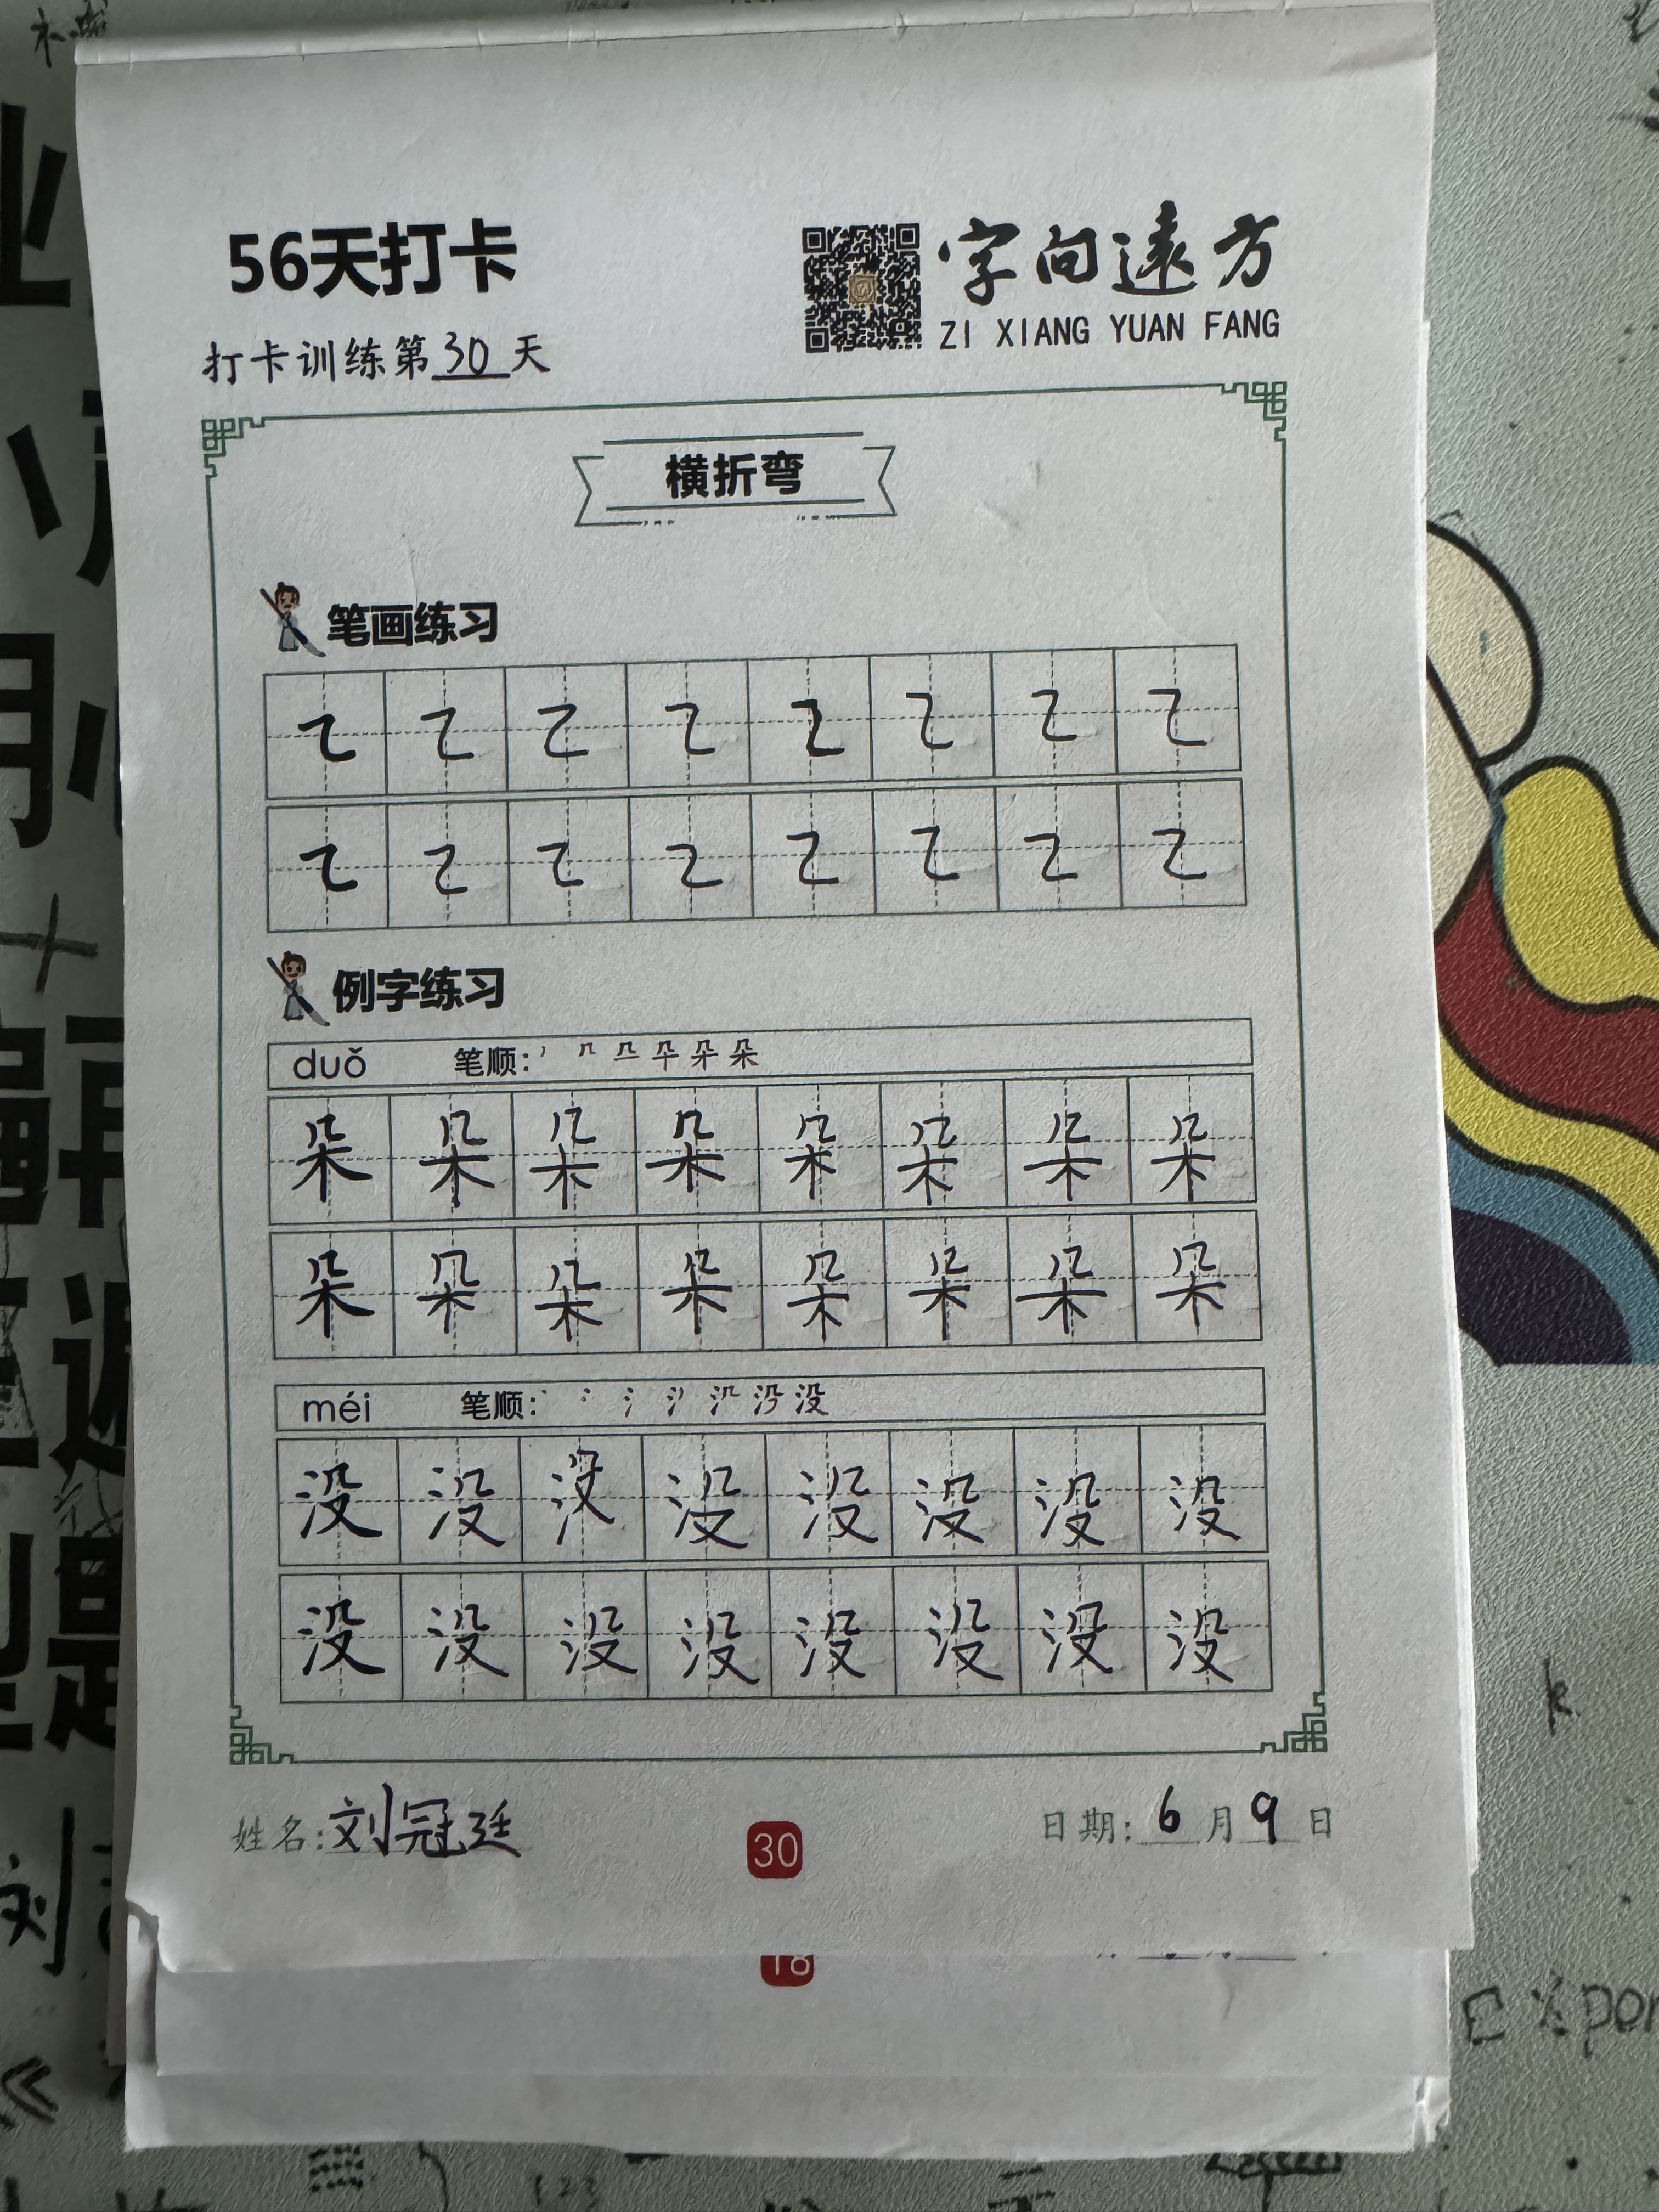 56天打卡
字向遠方
ZI XIANG YUAN FANG
打卡训练第30天
横折弯
笔画练习
例字练习
duǒ 笔顺:
朵朵朵朵朵朵朵朵
朵朵朵朵朵朵朵朵
méi 笔顺:
没没没没没没没没
没没没没没没没没
姓名:刘冠廷
30
日期:6月9日
18
k